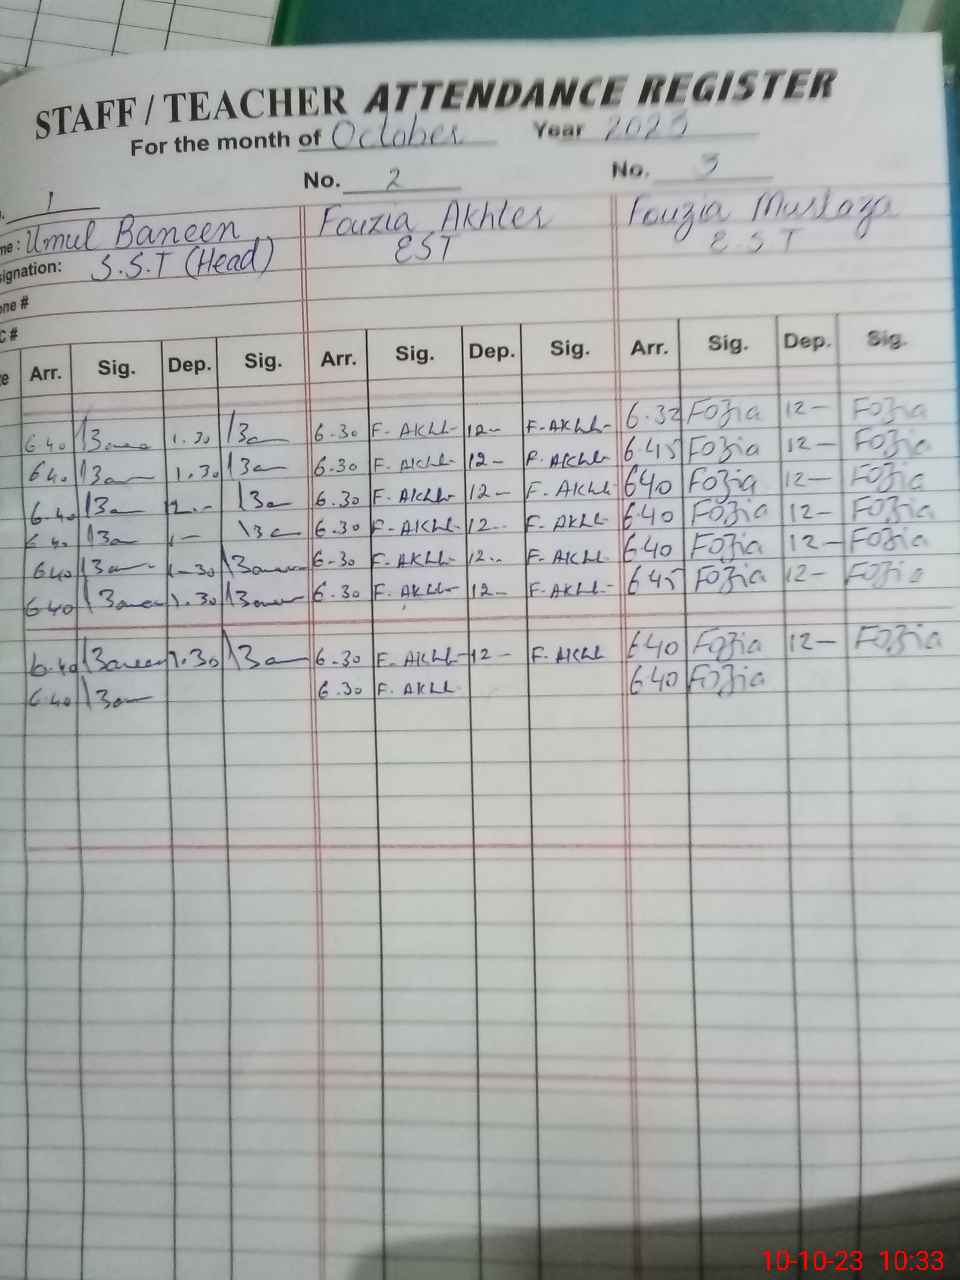 STAFF / TEACHER ATTENDANCE REGISTER
For the month of October Year 2023
1 No. 2 No. 3
me: Umul Baneen Fouzia Akhter Fouzia Mustafa
signation: S.S.T (Head) EST E.S.T
one #
C #
e Arr. Sig. Dep. Sig. Arr. Sig. Dep. Sig. Arr. Sig. Dep. Sig.
6 40 1.30 6.30 F. AKhl- 12- F. AKhl- 6.32 Fozia 12- Fozia
6 40 1.30 6.30 F. AKhl- 12- F. AKhl- 6.45 Fozia 12- Fozia
6.40 12.- 6.30 F. AKhl- 12- F. AKhl- 640 Fozia 12- Fozia
6.4. 1- 6.30 F. AKhl- 12.. F. AKhl- 640 Fozia 12- Fozia
640 1-30 6-30 F. AKhl- 12.. F. AKhl- 640 Fozia 12- Fozia
640 Baneen 1.30 6.30 F. AKhl- 12- F. AKhl- 645 Fozia 12- Fozia
6.40 Baneen 1.30 6.30 F. AKhl- 12- F. AKhl 640 Fozia 12- Fozia
6 40 6.30 F. AKhl 640 Fozia
10-10-23 10:33